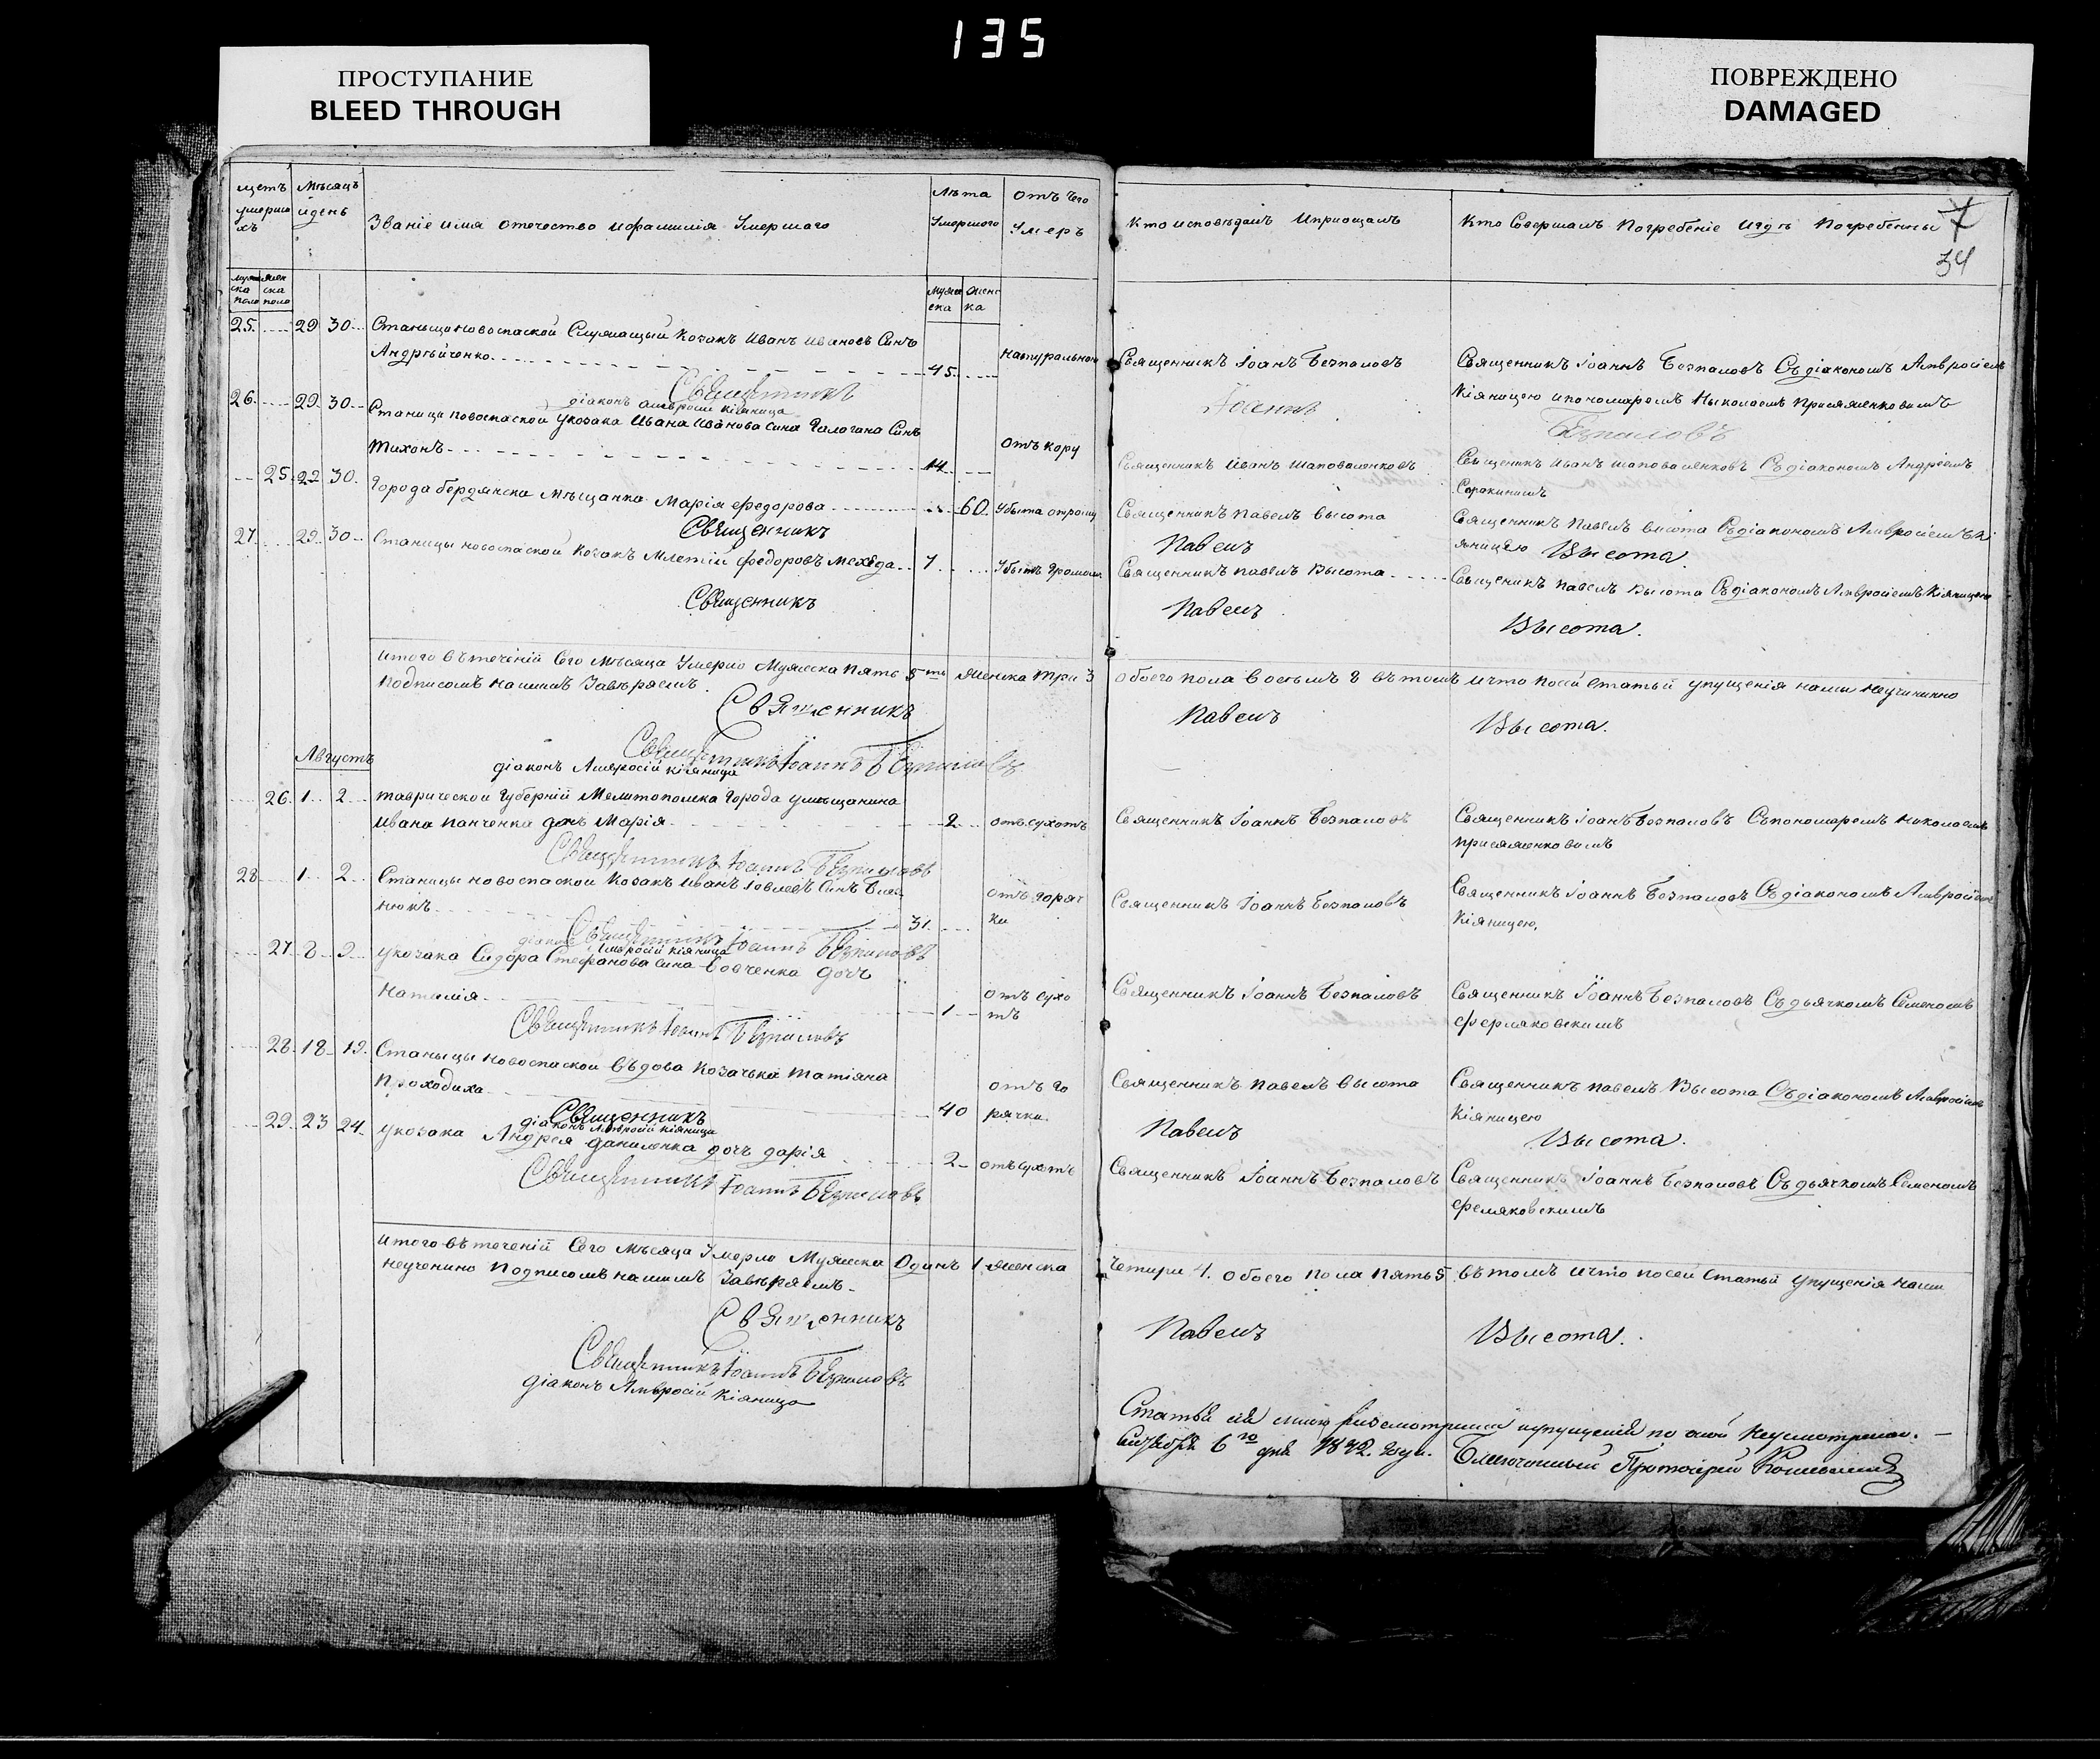 135
ПРОСТУПАНИЕ
BLEED THROUGH
ПОВРЕЖДЕНО
DAMAGED
щетъ умершихъ
Мѣсяцъ и день
Званіе имя отечество ифамилія Умершаго
Лѣта Умершого
Отъ чего Умеръ
Кто исповѣдалъ Иприощалъ
Кто Совершалъ Погребеніе Игдѣ Погребенны
7
34
муж ска пола
жен ска пола
Муж ска
Женс ка
25. 29 30 Станыци Новоспаской Служащый Козакъ Иванъ Ивановъ Синъ
Андрѣйченко 45 натуральною
Священникъ Іоанъ Безпаловъ
Священникъ Іоаннъ Безпаловъ Съдіакономъ Амвросіемъ
Кіяницею ипономаремъ Николаемъ Присяженковимъ
Священникъ Іоаннъ Безпаловъ
діаконъ Амвросій Кіяница
26. 29 30 Станици новоспаской укозака Ивана Иванова сина Галагана Синъ
Тихонъ 14 отъ кору
Священникъ Иванъ Шаповаленковъ
Священикъ Иванъ Шаповаленковъ Съдіакономъ Андреемъ
Сорокинимъ
25 22 30 Города бердянска Мѣщанка Марія федорова 60 Убыта отромц
Священникъ Павелъ Высота
Священникъ Павелъ Висота Съдіакономъ Амвросіемъ Кі
яницею
Священникъ Павелъ Высота.
27. 29 30 Станицы новоспаской Козакъ Млетій федоровъ Мехеда 7 Убытъ Громомъ
Священникъ Павелъ Высота
Священикъ Павелъ Высота Съдіакономъ Амвросіемъ Кіяницею
Священникъ Павелъ Высота.
Итого вътеченій Сего Мѣсяца Умерло Мужеска Пять 5ть женска три 3 обоего пола восемъ 8 вътомъ ичто посей Статьй упущенія нами неучинино
подписомъ нашимъ Завѣряемъ.
Священникъ Павелъ Высота.
Священникъ Іоаннъ Безпаловъ
діаконъ Амвросій Кіяница
Августъ
26. 1 2 таврической Губерній Мелитополска Города умѣщанина
Ивана Панченка дочъ Марія 2 отъ сухотъ
Священникъ Іоаннъ Безпаловъ
Священникъ Іоанъ Безпаловъ Съпономаремъ николаемъ
присяженковимъ
Священникъ Іоаннъ Безпаловъ
28 1 2 Станицы новоспаской Козакъ Иванъ Іовлевъ Синъ
нюкъ 31 отъ горяч
ки
Священникъ Іоаннъ Безпаловъ
Священникъ Іоаннъ Безпаловъ Съдіакономъ Амвросіемъ
Кіяницею,
Священникъ Іоаннъ Безпаловъ
діаконъ Амвросій Кіяница
27 8 9 укозака Сидора Стефанова сина Вовченка дочъ
Наталія 1 отъ сухо
тъ
Священникъ Іоаннъ Безпаловъ
Священникъ Іоаннъ Безпаловъ Съдьячкомъ Семеномъ
Священникъ Іоаннъ Безпаловъ
28. 18 19. Станыцы новоспаской Въдова Козачька Татіяна
Проходиха 40 отъ го
рячки
Священникъ Павелъ Высота
Священникъ Павелъ Высота Съдіакономъ Амвросіемъ
Кіяницею
Священникъ Павелъ Высота.
діаконъ Амвросій Кіяница
29. 23 24 укозака Андрея Даниленка дочъ Дарія 2 отъ сухотъ
Священникъ Іоаннъ Безпаловъ
Священникъ Іоаннъ Безпаловъ Съдьячкомъ Семеномъ
Священникъ Іоаннъ Безпаловъ
Итого вътеченій Сего мѣсяца Умерло Мужеска Одинъ 1 женска Четири 4. обоего пола пять 5 вътомъ ичто посей Статьй упущенія нами
неученино подписомъ нашимъ Завѣряемъ.
Священникъ Павелъ Высота.
Священникъ Іоаннъ Безпаловъ
діаконъ Амвросій Кіяница
Статья сія мною разсмотрена иупущенія по оной неусмотрено.
6го дня года. Благочинный Протоіерей